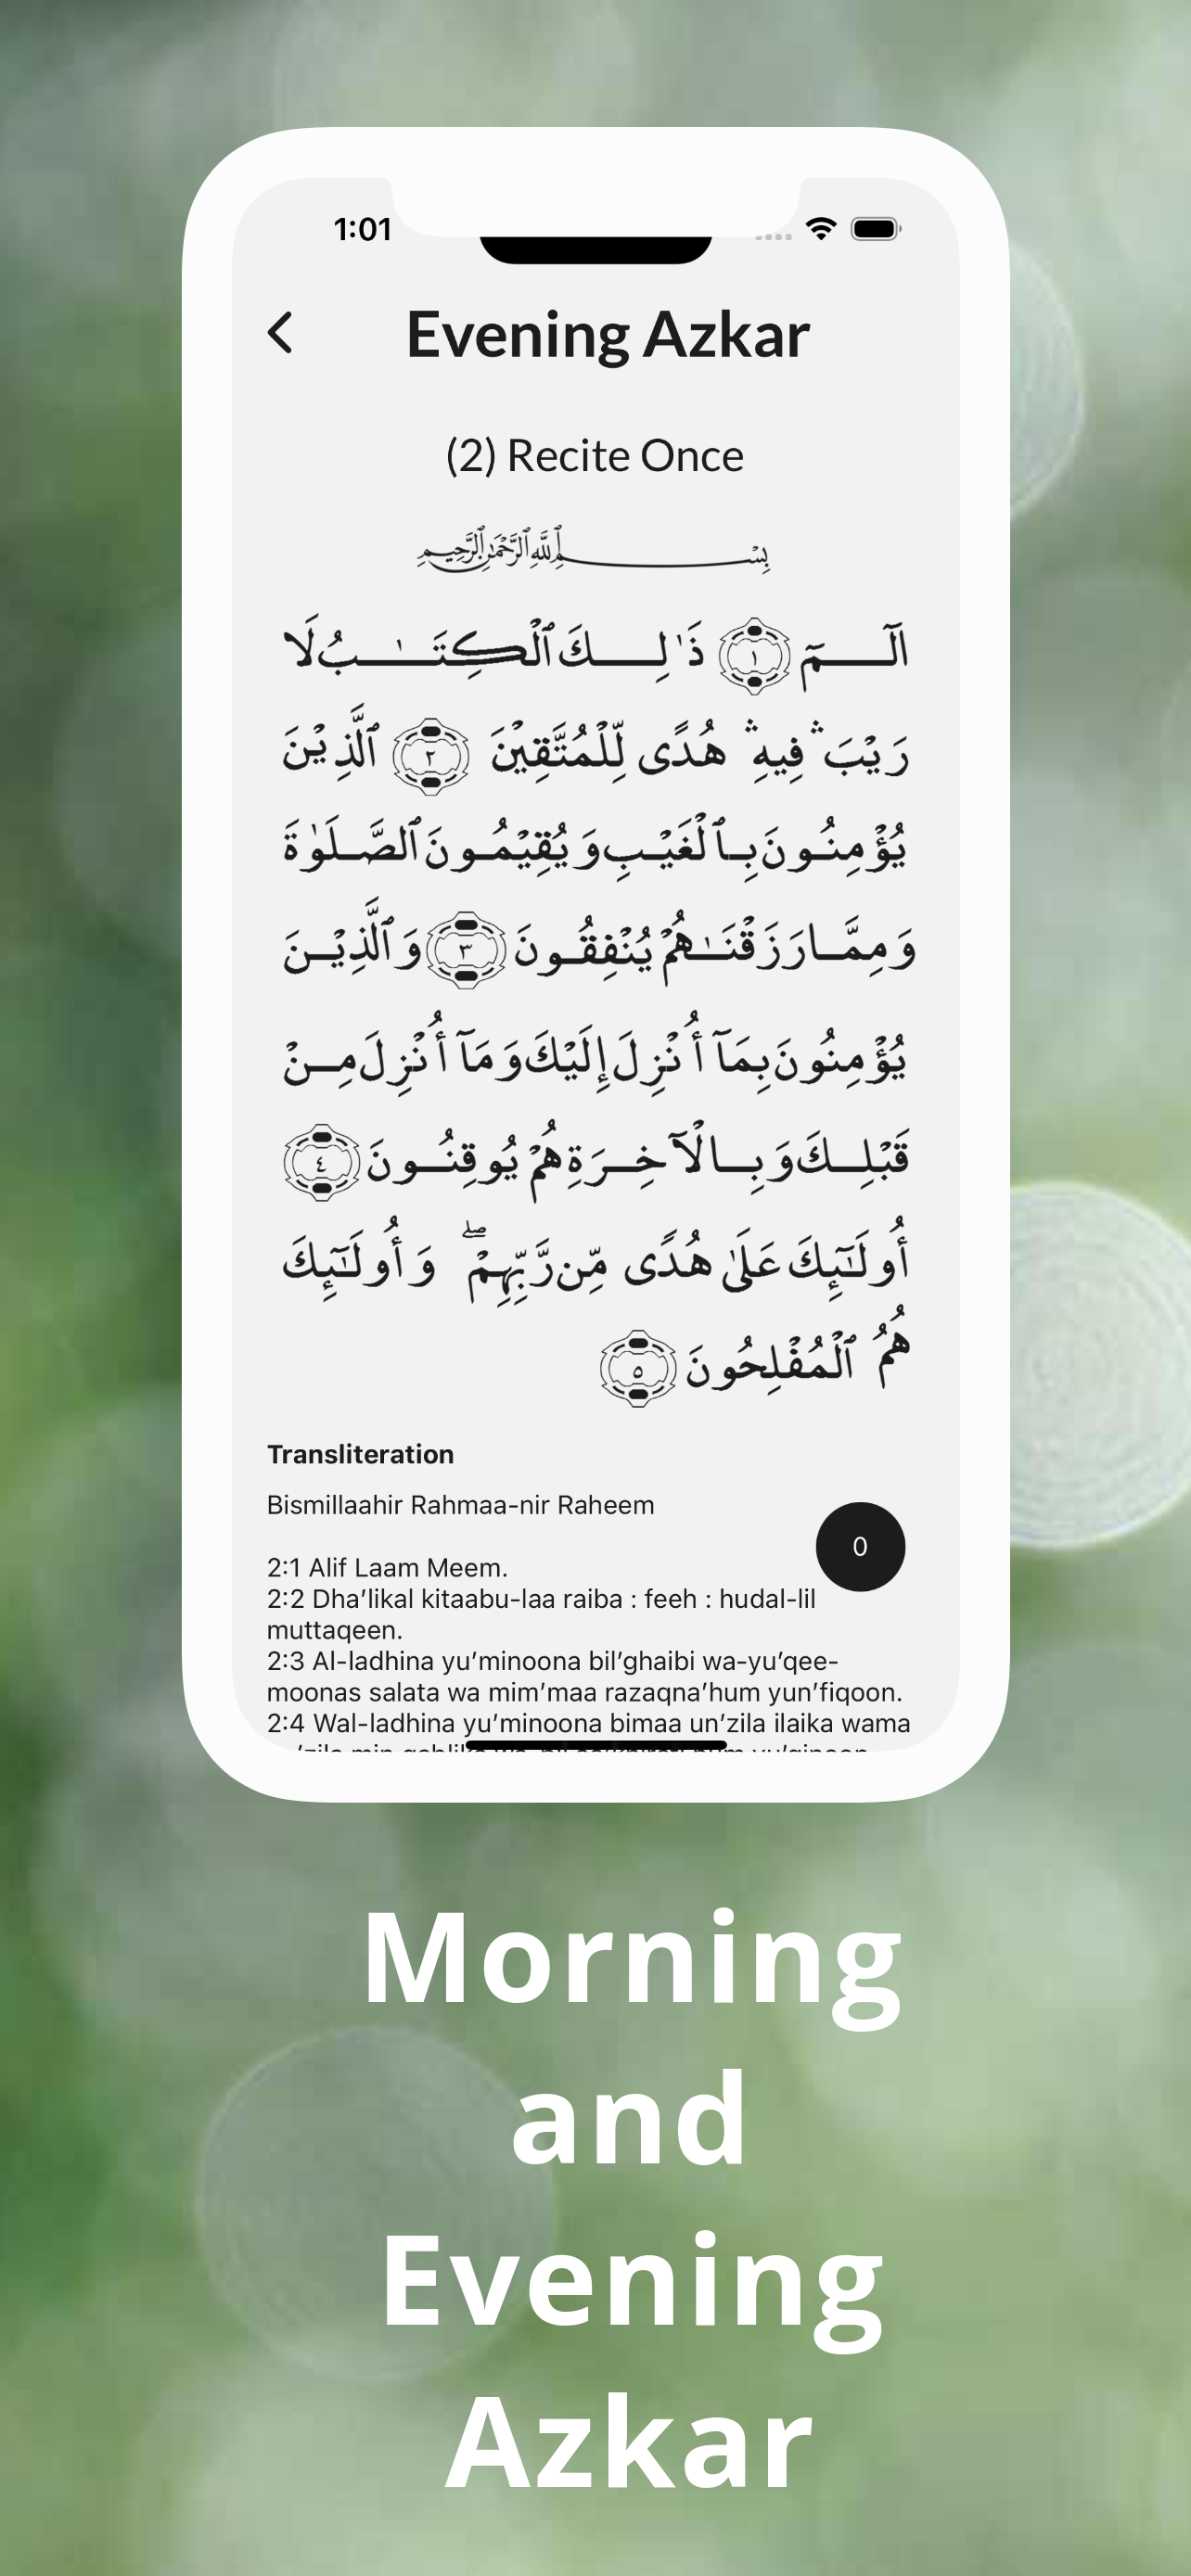 1:01
Evening Azkar
(2) Recite Once
بِسْمِ ٱللَّهِ ٱلرَّحْمَٰنِ ٱلرَّحِيمِ
الٓمٓ ١ ذَٰلِكَ ٱلْكِتَٰبُ لَا
رَيْبَ ۛ فِيهِ ۛ هُدًى لِّلْمُتَّقِيْنَ ٢ ٱلَّذِيْنَ
يُؤْمِنُونَ بِٱلْغَيْبِ وَيُقِيْمُونَ ٱلصَّلَوٰةَ
وَمِمَّا رَزَقْنَٰهُمْ يُنْفِقُونَ ٣ وَٱلَّذِيْنَ
يُؤْمِنُونَ بِمَآ أُنْزِلَ إِلَيْكَ وَمَآ أُنْزِلَ مِنْ
قَبْلِكَ وَبِالْآخِرَةِ هُمْ يُوقِنُونَ ٤
أُولَٰٓئِكَ عَلَىٰ هُدًى مِّن رَّبِّهِمْ ۖ وَأُولَٰٓئِكَ
هُمُ ٱلْمُفْلِحُونَ ٥
Transliteration
Bismillaahir Rahmaa-nir Raheem
0
2:1 Alif Laam Meem.
2:2 Dha’likal kitaabu-laa raiba : feeh : hudal-lil
muttaqeen.
2:3 Al-ladhina yu’minoona bil’ghaibi wa-yu’qee-
moonas salata wa mim’maa razaqna’hum yun’fiqoon.
2:4 Wal-ladhina yu’minoona bimaa un’zila ilaika wama
Morning
and
Evening
Azkar